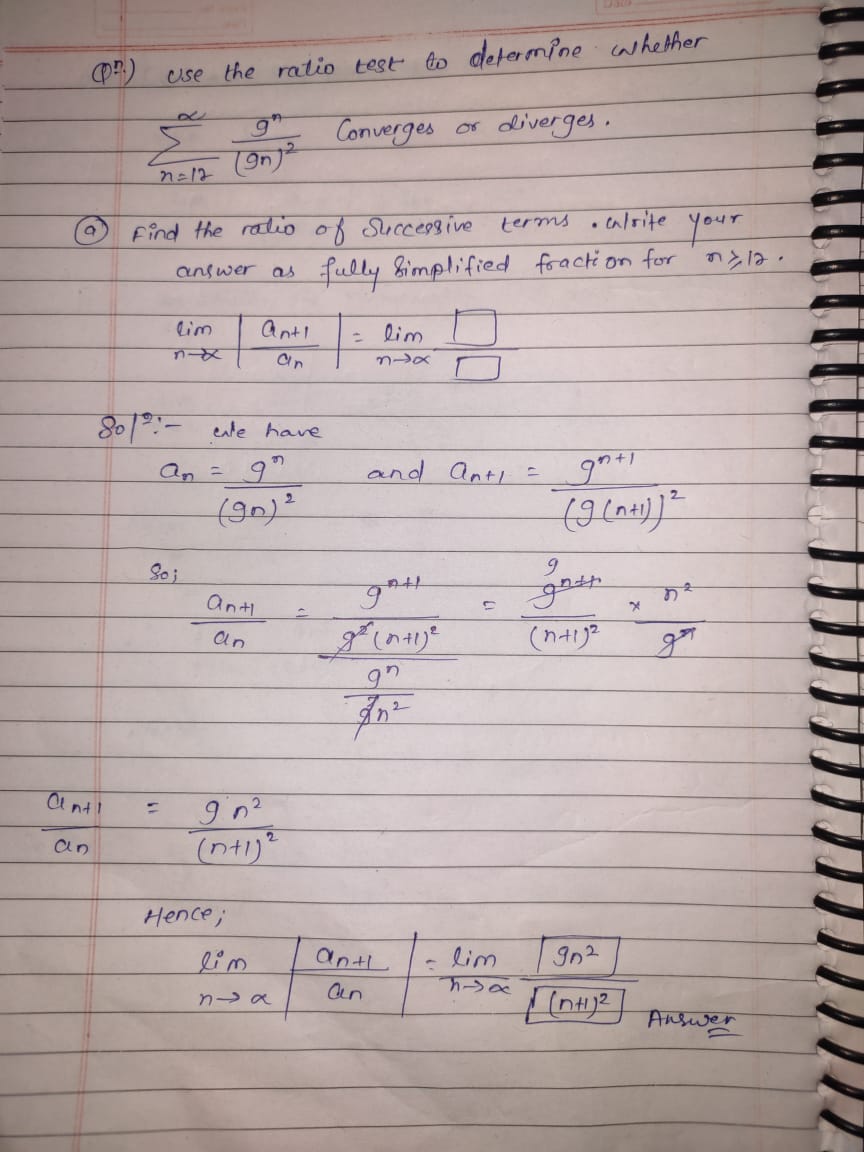 Qn.) Use the ratio test to determine whether
∑ n=12 ∞ 9^n / (9n)^2 Converges or diverges.
(a) Find the ratio of Successive terms. Write your
answer as fully Simplified fraction for n≥12.
lim n→∞ | an+1 / an | = lim n→∞ □ / □
Soln:- We have
an = 9^n / (9n)^2 and an+1 = 9^n+1 / (9(n+1))^2
So; an+1 / an = 9^n+1 / 9^2(n+1)^2 / 9^n / 9^2n^2 = 9 9^n+1 / (n+1)^2 × n^2 / 9^n
an+1 / an = 9n^2 / (n+1)^2
Hence;
lim n→∞ | an+1 / an | = lim n→∞ 9n^2 / (n+1)^2 Answer